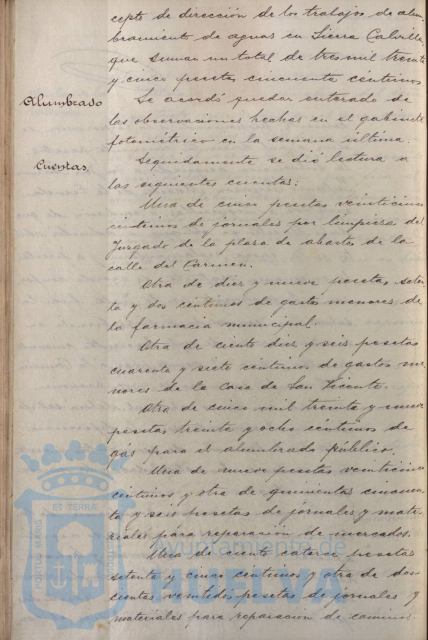 cepto de dirección de los trabajos de alum-
bramiento de aguas en Sierra Calvilla,
que suman un total de tres mil treinta
y cinco pesetas cincuenta céntimos.
Alumbrado
Se acordó quedar enterado de
las observaciones hechas en el gabinete
fotométrico en la semana última.
Cuentas
Seguidamente se dió lectura a
las siguientes cuentas:
Una de cinco pesetas veinticinco
céntimos de jornales por limpieza del
Juzgado de la plaza de abastos de la
calle del Carmen.
Otra de diez y nueve pesetas seten-
ta y dos céntimos de gastos menores de
la farmacia municipal.
Otra de ciento diez y seis pesetas
cuarenta y siete céntimos de gastos me-
nores de la Casa de San Vicente.
Otra de cinco mil treinta y nueve
pesetas treinta y ocho céntimos de
gas para el alumbrado público.
Una de nueve pesetas veinticinco
céntimos y otra de quinientas cincuen-
ta y seis pesetas de jornales y mate-
riales para reparación de mercados.
Una de ciento catorce pesetas
setenta y cinco céntimos y otra de dos-
cientas veintidos pesetas de jornales y
materiales para reparación de caminos
PORTUS MARIS
ET TERRAE
Ayuntamiento de
HUELVA